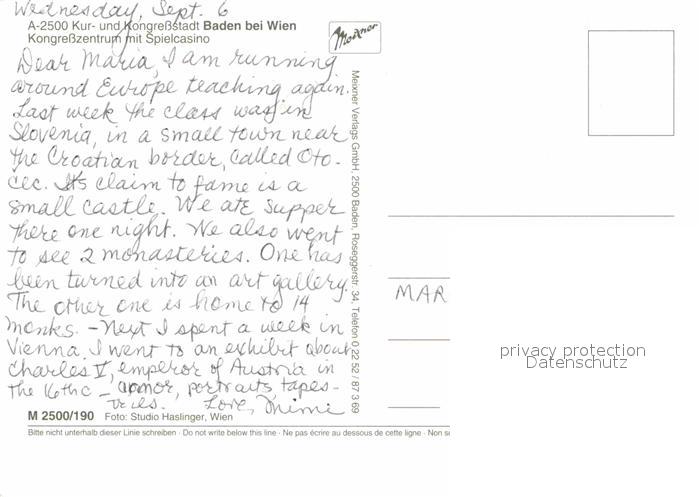 Wednesday, Sept. 6
A-2500 Kur- und Kongreßstadt Baden bei Wien
Kongreßzentrum mit Spielcasino
Meixner
Dear Maria, I am running
around Europe teaching again.
Last week the class was in
Slovenia, in a small town near
the Croatian border, called Oto-
cec. It's claim to fame is a
small castle. We ate supper
there one night. We also went
to see 2 monasteries. One has
been turned into an art gallery.
The other one is home to 14
monks. - Next I spent a week in
Vienna. I went to an exhibit about
Charles V, emperor of Austria in
the 16th c - armor, portraits, tapes-
tries. Love, Mimi
M 2500/190 Foto: Studio Haslinger, Wien
Bitte nicht unterhalb dieser Linie schreiben · Do not write below this line · Ne pas écrire au dessous de cette ligne · Non s
Meixner Verlags GmbH, 2500 Baden, Roseggerstr. 34, Telefon 0 22 52 / 87 3 69
MAR
privacy protection
Datenschutz